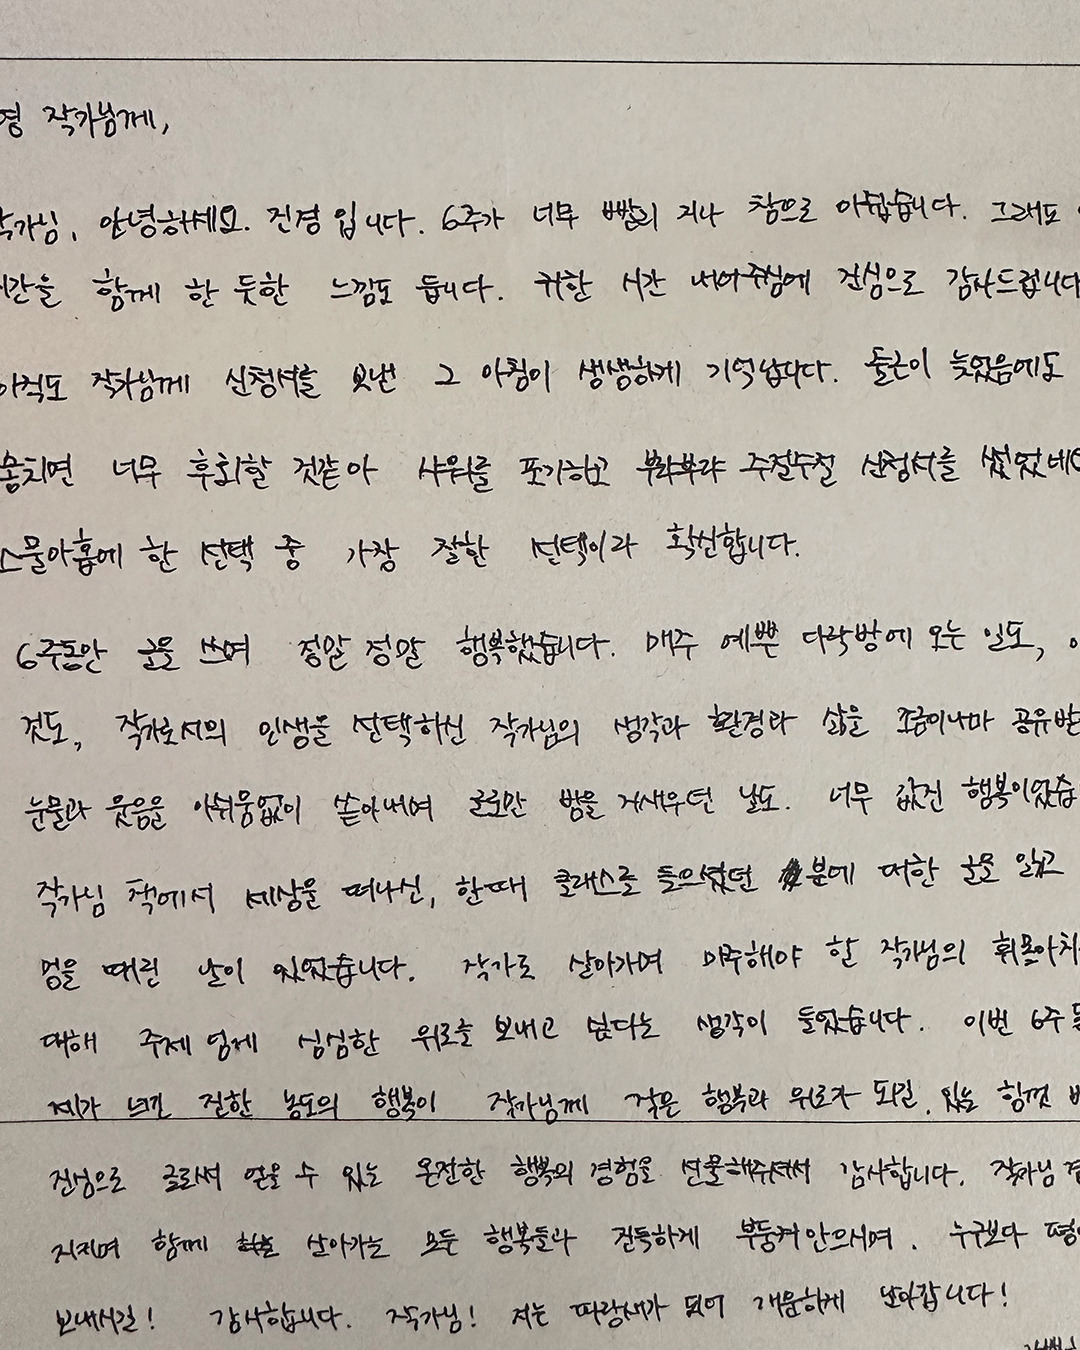 영 작가님께,
작가님, 안녕하세요. 진경입니다. 6주가 너무 빨리 지나 참으로 아쉽습니다. 그래도
시간을 함께 한 듯한 느낌도 듭니다. 귀한 시간 내어주심에 진심으로 감사드립니다
아직도 작가님께 신청서를 보낸 그 아침이 생생하게 기억납니다. 출근이 늦었음에도
놓치면 너무 후회할 것같아 샤워를 포기하고 부랴부랴 주절주절 신청서를 썼었네요
스물아홉에 한 선택 중 가장 잘한 선택이라 확신합니다.
6주동안 글을 쓰며 정말 정말 행복했습니다. 매주 예쁜 다락방에 오는 일도,
것도, 작가로서의 인생을 선택하신 작가님의 생각과 환경과 삶을 조금이나마 공유받
눈물과 웃음을 아쉬움없이 쏟아내며 글로만 밤을 지새우던 날도. 너무 값진 행복이었습
작가님 책에서 세상을 떠나신, 한때 클래스를 들으셨던 분에 대한 글을 읽고
멍을 때린 날이 있었습니다. 작가로 살아가며 마주해야 할 작가님의 휘몰아치
대해 주제 넘게 심심한 위로를 보내고 싶다는 생각이 들었습니다. 이번 6주
제가 느낀 진한 농도의 행복이 작가님께 작은 행복과 위로가 되길, 있는 힘껏
진심으로 글로써 얻을 수 있는 온전한 행복의 경험을 선물해주셔서 감사합니다. 작가님 곁
지지며 함께 살아가는 모든 행복들과 진득하게 부둥켜안으시며, 누구보다
보내시길! 감사합니다. 작가님! 저는 파랑새가 되어 개운하게 날아갑니다!